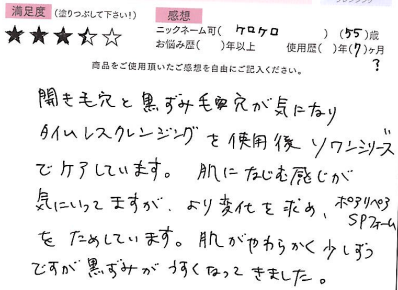 満足度 (塗りつぶして下さい!) 感想
ニックネーム可( ケロケロ )(55)歳
お悩み歴( )年以上 使用歴( )年(7)ヶ月
?
商品をご使用頂いたご感想を自由にご記入ください。
開き毛穴と黒ずみ毛穴が気になり
タイムレスクレンジングを使用後 ソワンシリーズ
でケアしています。肌になじむ感じが
気にいってますが、より変化を求め、ポアリペア
SPフォーム
をためしています。肌がやわらかく少しずつ
ですが黒ずみがうすくなってきました。